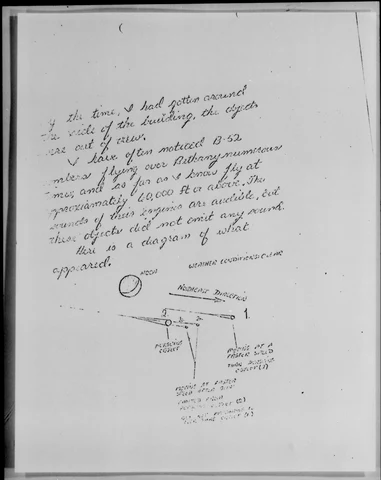 the time, I had gotten around
the side of the building, the objects
were out of view.
I have often noticed B-52
bombers flying over Bethany numerous
times and as far as I know fly at
approximately 60,000 ft or above. The
sounds of their engines are audible, but
these objects did not omit any sound.
Here is a diagram of what
appeared.
MOON
WEATHER CONDITIONS CLEAR
NORTHEAST DIRECTION
2 1
MOVING AT A
FASTER SPEED
OBJECT (1)
OBJECT
MOVING AT FASTER
SPEED
OBJECT (2)